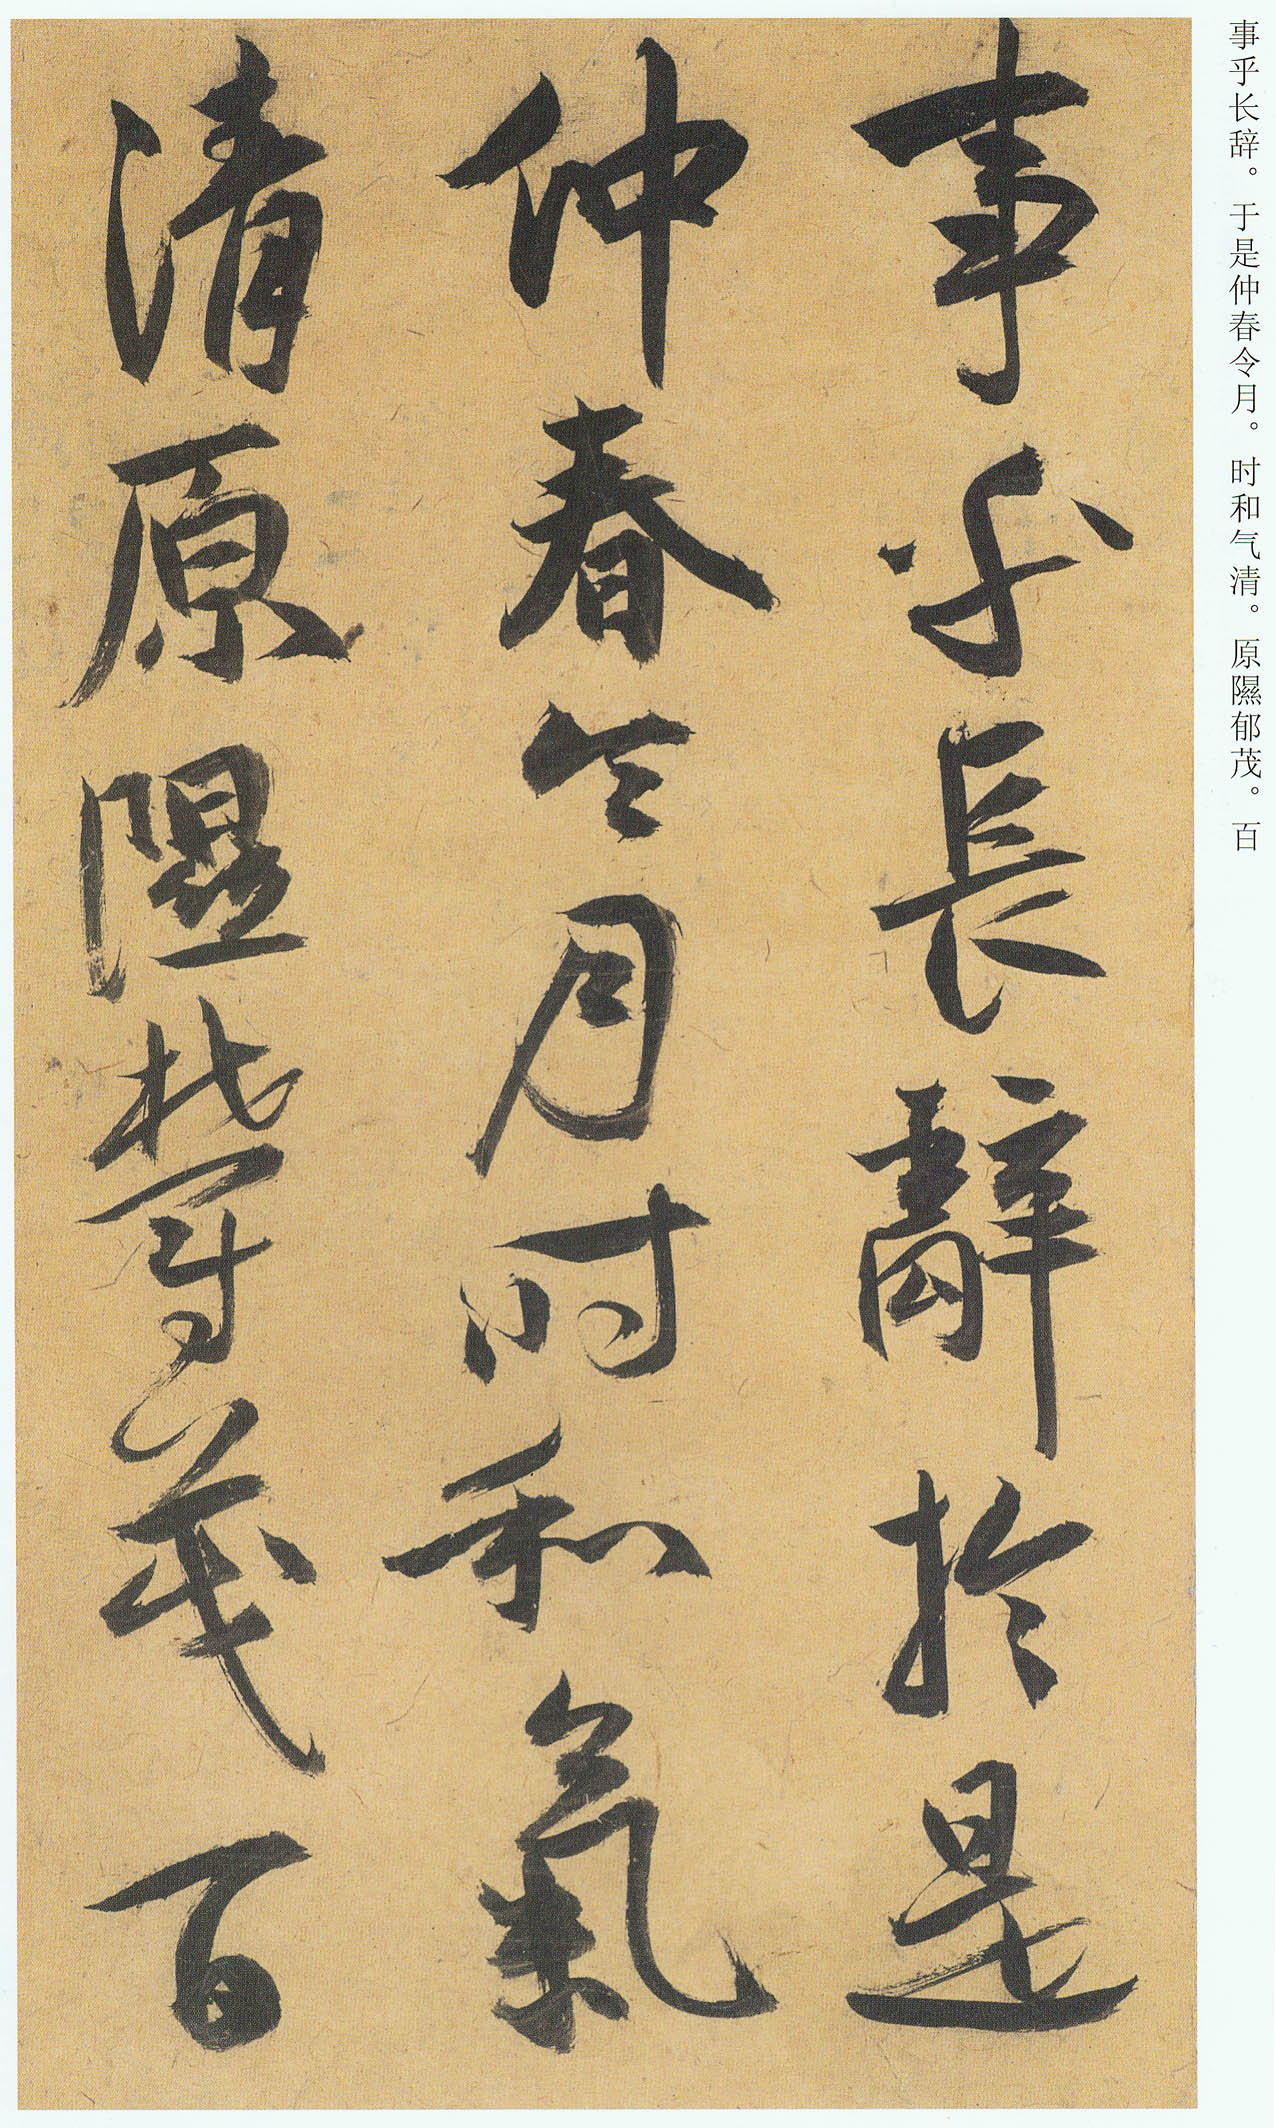 事乎长辞。于是仲春令月。时和气清。原隰郁茂。百
事乎長辭於是
仲春令月时和氣
清原隰欝茂百